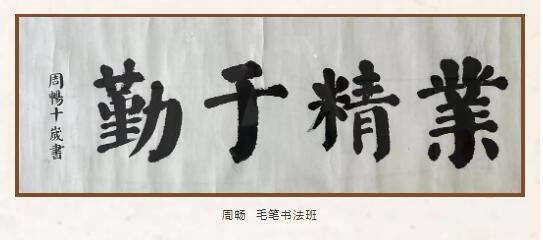 業精于勤
周暢十歲書
周畅 毛笔书法班